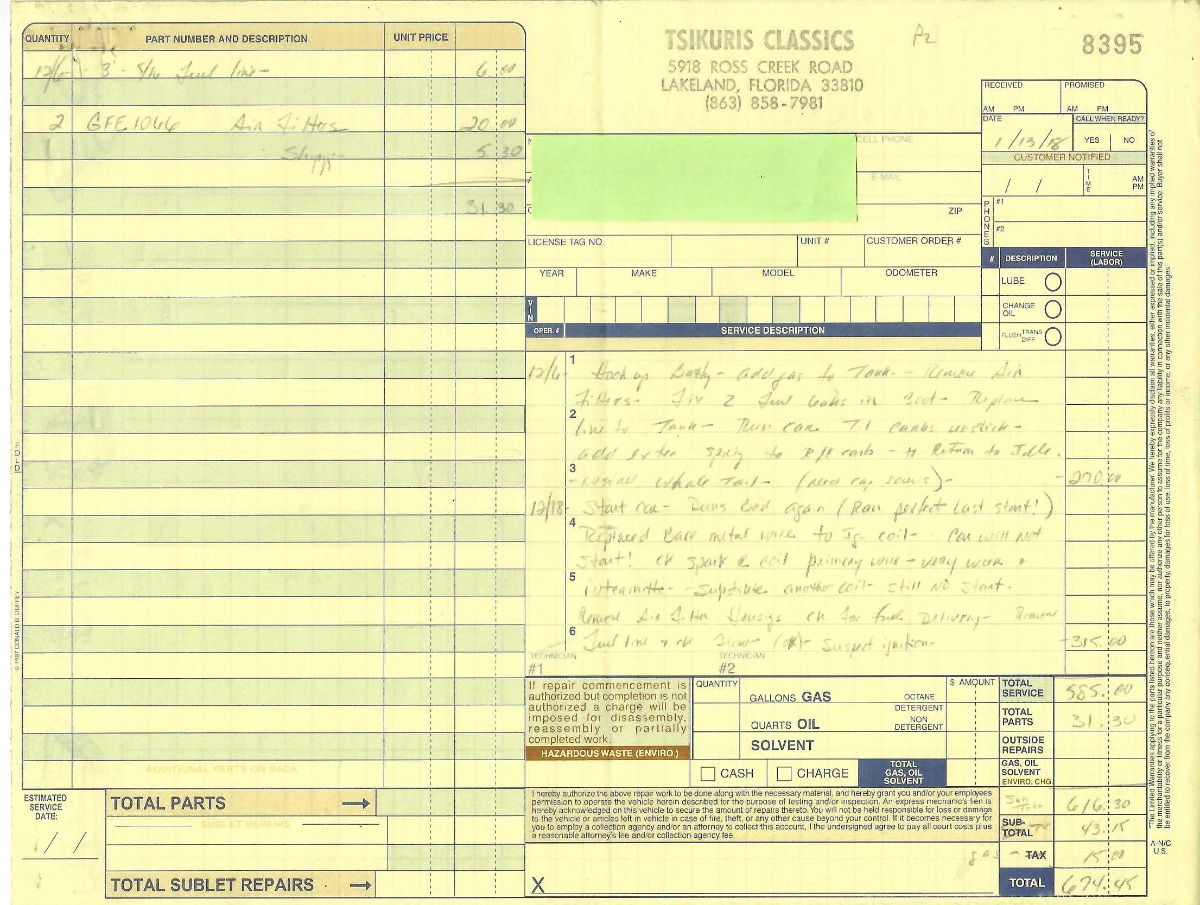 QUANTITY PART NUMBER AND DESCRIPTION UNIT PRICE
12/6 - 3' - 5/16 Fuel line - 6.00
2 GFE1066 Air Filters 20.00
5.30
31.30
ADDITIONAL PARTS ON BACK
ESTIMATED SERVICE DATE:
/ /
TOTAL PARTS
SUBLET REPAIRS
TOTAL SUBLET REPAIRS
© 1987 DONALD B. DUFFEY
TSIKURIS CLASSICS
5918 ROSS CREEK ROAD
LAKELAND, FLORIDA 33810
(863) 858-7981
8395
RECEIVED PROMISED
AM PM AM PM
DATE CALL WHEN READY?
1/13/18 YES NO
CUSTOMER NOTIFIED
/ / TIME AM PM
CELL PHONE
E-MAIL
ZIP
PHONES
#1
#2
LICENSE TAG NO. UNIT # CUSTOMER ORDER #
YEAR MAKE MODEL ODOMETER
VIN
# DESCRIPTION SERVICE (LABOR)
LUBE
CHANGE OIL
FLUSH TRANS DIFF
OPER. # SERVICE DESCRIPTION
1
12/6 - Hook up - add gas to Tank - Remove Air
Filters - Fix 2 Fuel leaks in - Replace
2
line to Tank - Run car Til carbs unstick -
add extra spring to carb - to Return to Idle.
3
- Whale Tail - (need cap screws) - 270.00
12/18 - Start car - Runs Bad again (Ran perfect Last start!)
4
Replaced Bare metal wire to Ig. coil - Car will not
Start! ck spark @ coil primary wire - very weak &
5
- another coil - still NO Start.
Remove Air Filter Housings ck for fuel Delivery - Remove
6
Fuel line & ck (OK) - Suspect ignition - 315.00
TECHNICIAN #1 TECHNICIAN #2
If repair commencement is authorized but completion is not authorized a charge will be imposed for disassembly, reassembly or partially completed work.
HAZARDOUS WASTE (ENVIRO.)
QUANTITY $ AMOUNT
GALLONS GAS OCTANE
QUARTS OIL DETERGENT NON DETERGENT
SOLVENT
CASH CHARGE TOTAL GAS, OIL SOLVENT
TOTAL SERVICE 585.00
TOTAL PARTS 31.30
OUTSIDE REPAIRS
GAS, OIL SOLVENT ENVIRO. CHG.
616.30
SUB-TOTAL 43.15
gas - TAX 15.00
TOTAL 674.45
I hereby authorize the above repair work to be done along with the necessary material, and hereby grant you and/or your employees
permission to operate the vehicle herein described for the purpose of testing and/or inspection. An express mechanic's lien is
hereby acknowledged on this vehicle to secure the amount of repairs thereto. You will not be held responsible for loss or damage
to the vehicle or articles left in vehicle in case of fire, theft, or any other cause beyond your control. If it becomes necessary for
you to employ a collection agency and/or an attorney to collect this account, I the undersigned agree to pay all court costs plus
a reasonable attorney's fee and/or collection agency fee.
X
A-N/C U.S.